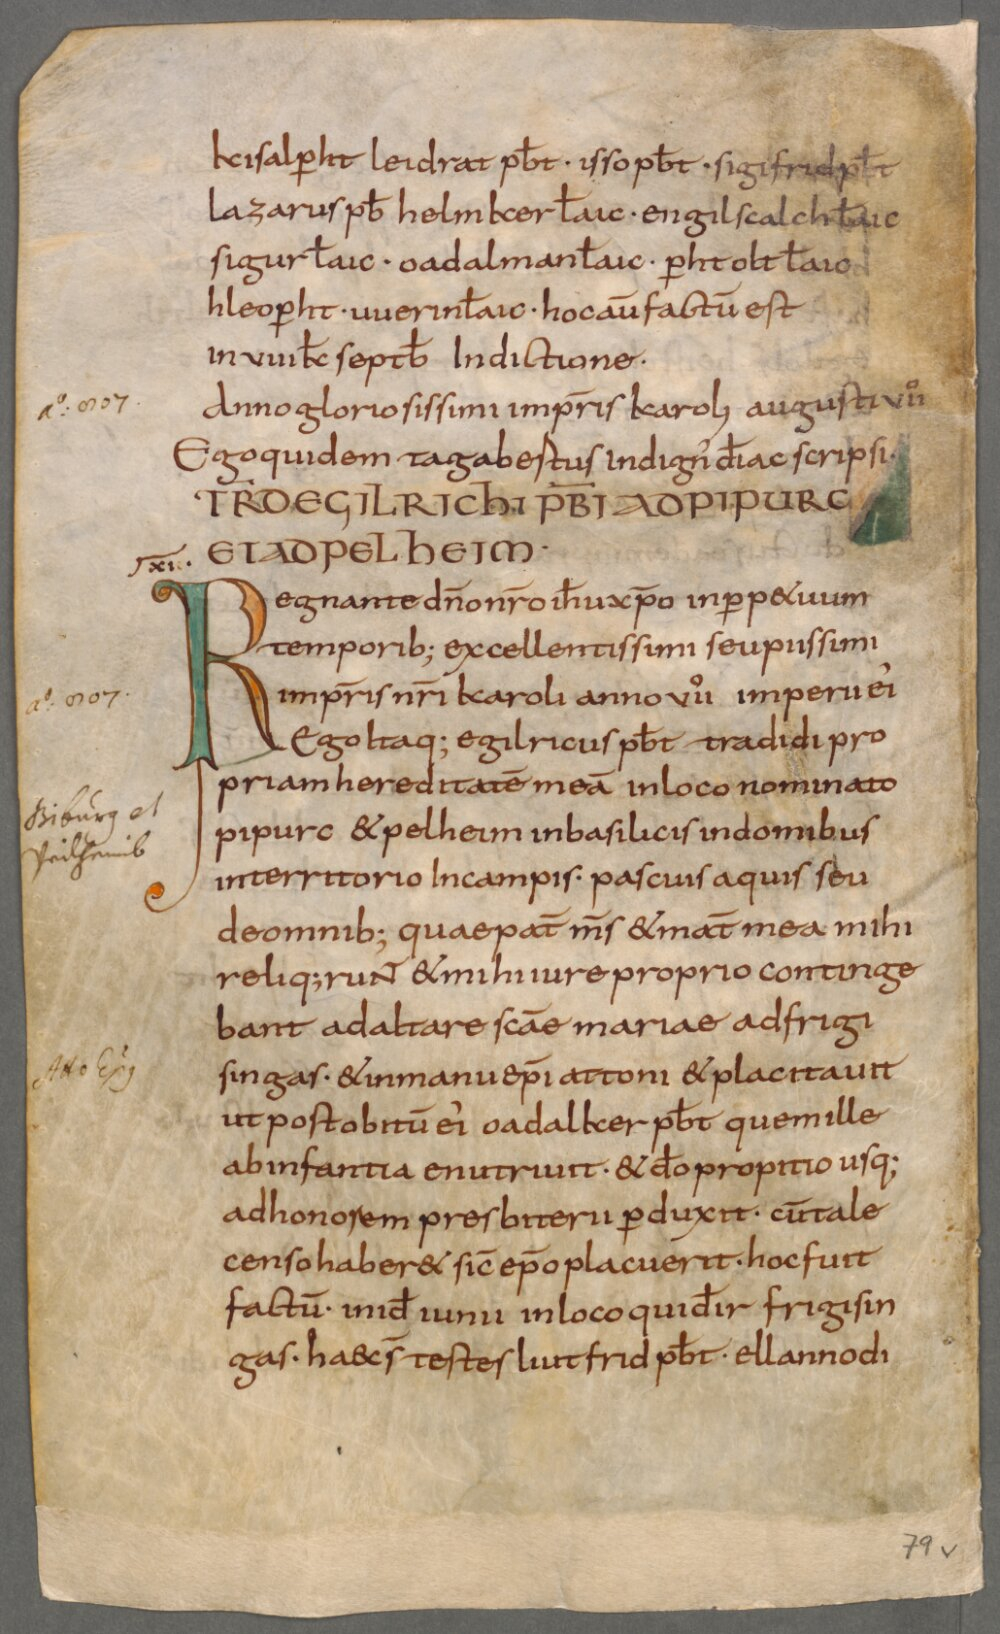 kisalp̄ht leidrat pb̄t · isso pb̄t · sigifrid pb̄t
lazarus pb̄ helmker l̄aic · engilscalch l̄aic
sigur l̄aic · oadalman l̄aic · p̄htolt l̄aic
hleop̄ht · uuerin l̄aic · hoc aū factū est
in viiii kł septb̄ Indictione ·
aº: 807.
Anno gloriosissimi imp̄ris karoli augusti vii̊
Ego quidem tagabestus indign̄ d̄iac scripsi ·
TR̄ DEGILRICHI PB̄I AD PIPURC
ET AD PELHEIM ·
Regnante dn̄o nr̄o ih̄u xp̄o in p̄p&uum
temporib; excellentissimi seu piissimi
imp̄ris nr̄i karoli anno vii̊ imperii ei᾿
aº: 807.
Ego itaq; egilricus pb̄t tradidi pro
priam hereditatē meā in loco nominato
Biburg et
pipurc & pelheim in basilicis in domibus
in territorio In campis · pascuis aquis seu
de omnib; quae pat̄ m̄s & mat̄ mea mihi
reliq;runt & mihi iure proprio continge
bant ad altare sc̄ae mariae ad frigi
Atto Ep̄s
singas · & in manu ep̄i attoni & placitauit
ut post obitū ei᾿ oadalker pb̄t quem ille
ab infantia enutriuit · & d̄o propitio usq;
ad honorem presbiterii p̄duxit · cū tale
censo haber& sic̄ ep̄o placuerit · hoc fuit
factū · in id̄ iunii in loco qui d̄ir frigisin
gas · haec s̄ testes liutfrid pb̄t · ellannod i
79 v